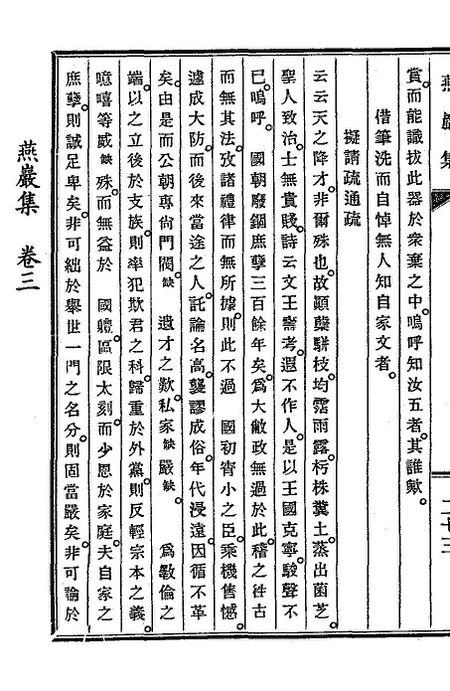 燕巖集
二十三
賞。而能識拔此器於衆棄之中。嗚呼知汝五者。其誰歟。
借筆洗而自悼無人知自家文者。
擬請疏通疏
云云天之降才。非爾殊也。故顚蘖騈枝。均霑雨露。朽株糞土。蒸出菌芝。
聖人致治。士無貴賤。詩云文王壽考。遐不作人。是以王國克寧。駿聲不
已。嗚呼。 國朝廢錮庶孼三百餘年矣。爲大敝政無過於此。稽之往古
而無其法。攷諸禮律而無所據。則此不過 國初宵小之臣。乘機售憾。
遽成大防。而後來當途之人。託論名高。襲謬成俗。年代浸遠。因循不革
矣。由是而公朝專尙門閥。缺 遺才之歎。私家缺嚴缺 爲斁倫之
端。以之立後於支族。則率犯欺君之科。歸重於外黨。則反輕宗本之義。
噫嘻等威缺殊。而無益於 國體。區限太刻。而少恩於家庭。夫自家之
庶孼。則誠足卑矣。非可絀於擧世一門之名分。則固當嚴矣。非可論於
燕巖集 卷三